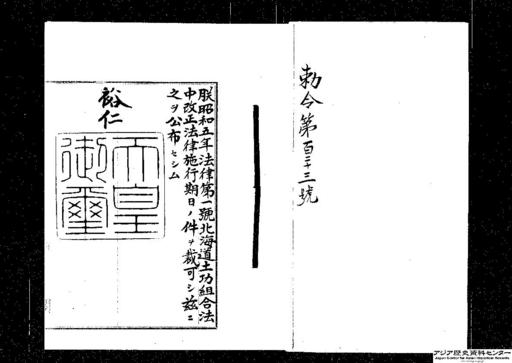 勅令第百二十三號
朕昭和五年法律第一號北海道土功組合法
中改正法律施行期日ノ件ヲ裁可シ茲ニ
之ヲ公布セシム
裕仁
天皇
御璽
アジア歴史資料センター
Japan Center for Asian Historical Records